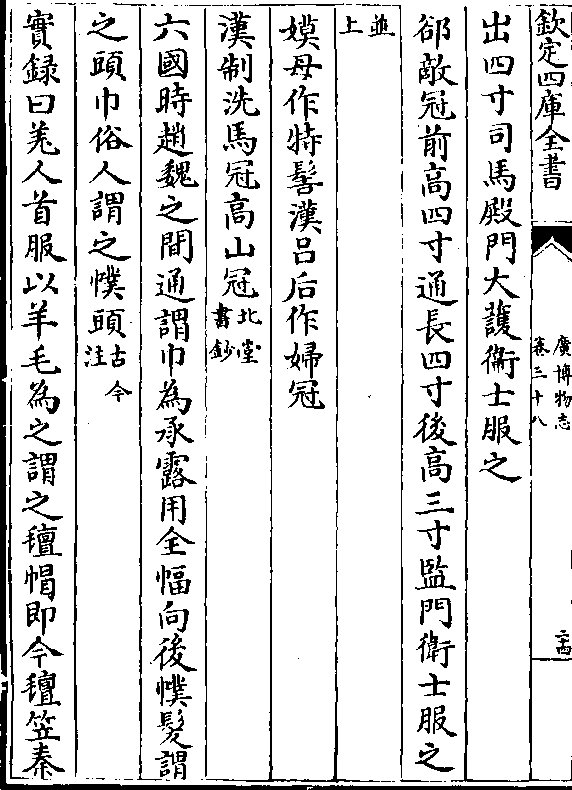 欽定四庫全書
廣博物志
卷三十八
二十四
出四寸司馬殿門大護衛士服之
郤敵冠前高四寸通長四寸後高三寸監門衛士服之
並上
嫫母作特髻漢呂后作婦冠
漢制洗馬冠高山冠北堂書鈔
六國時趙魏之間通謂巾為承露用全幅向後幞髮謂
之頭巾俗人謂之幞頭古今注
實録曰羌人首服以羊毛為之謂之氊帽即今氊笠秦